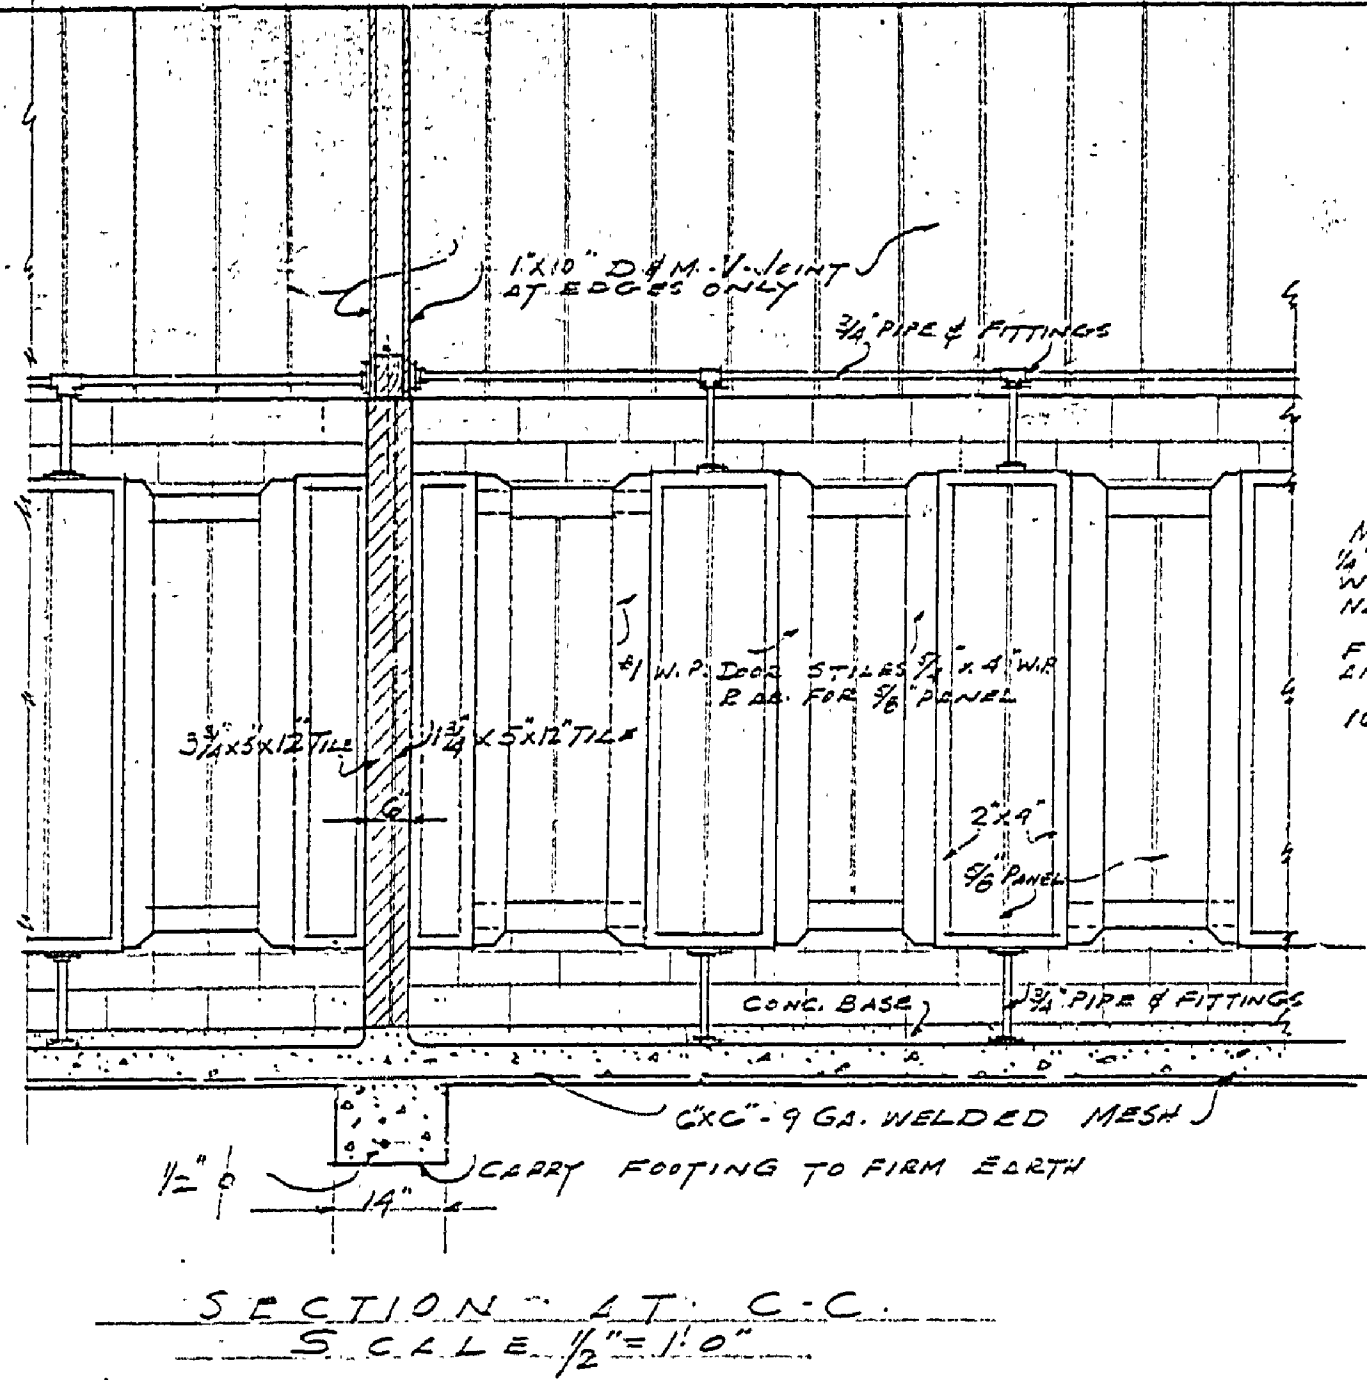 1"X10" D & M. V-JOINT
AT EDGES ONLY
3/4" PIPE & FITTINGS
M
1/4"
W
N
#1 W.P. DOOR STILES 5/4" X 4" W.P.
RAB. FOR 5/8" PANEL
F
10
3 3/4"X5"X12" TILE
1 3/4"X5"X12" TILE
6"
2"X4"
5/8" PANEL
CONC. BASE
3/4" PIPE & FITTINGS
6"X6"-9 GA. WELDED MESH
CARRY FOOTING TO FIRM EARTH
1/2" ϕ
14"
SECTION - AT C-C.
SCALE 1/2"=1'0"